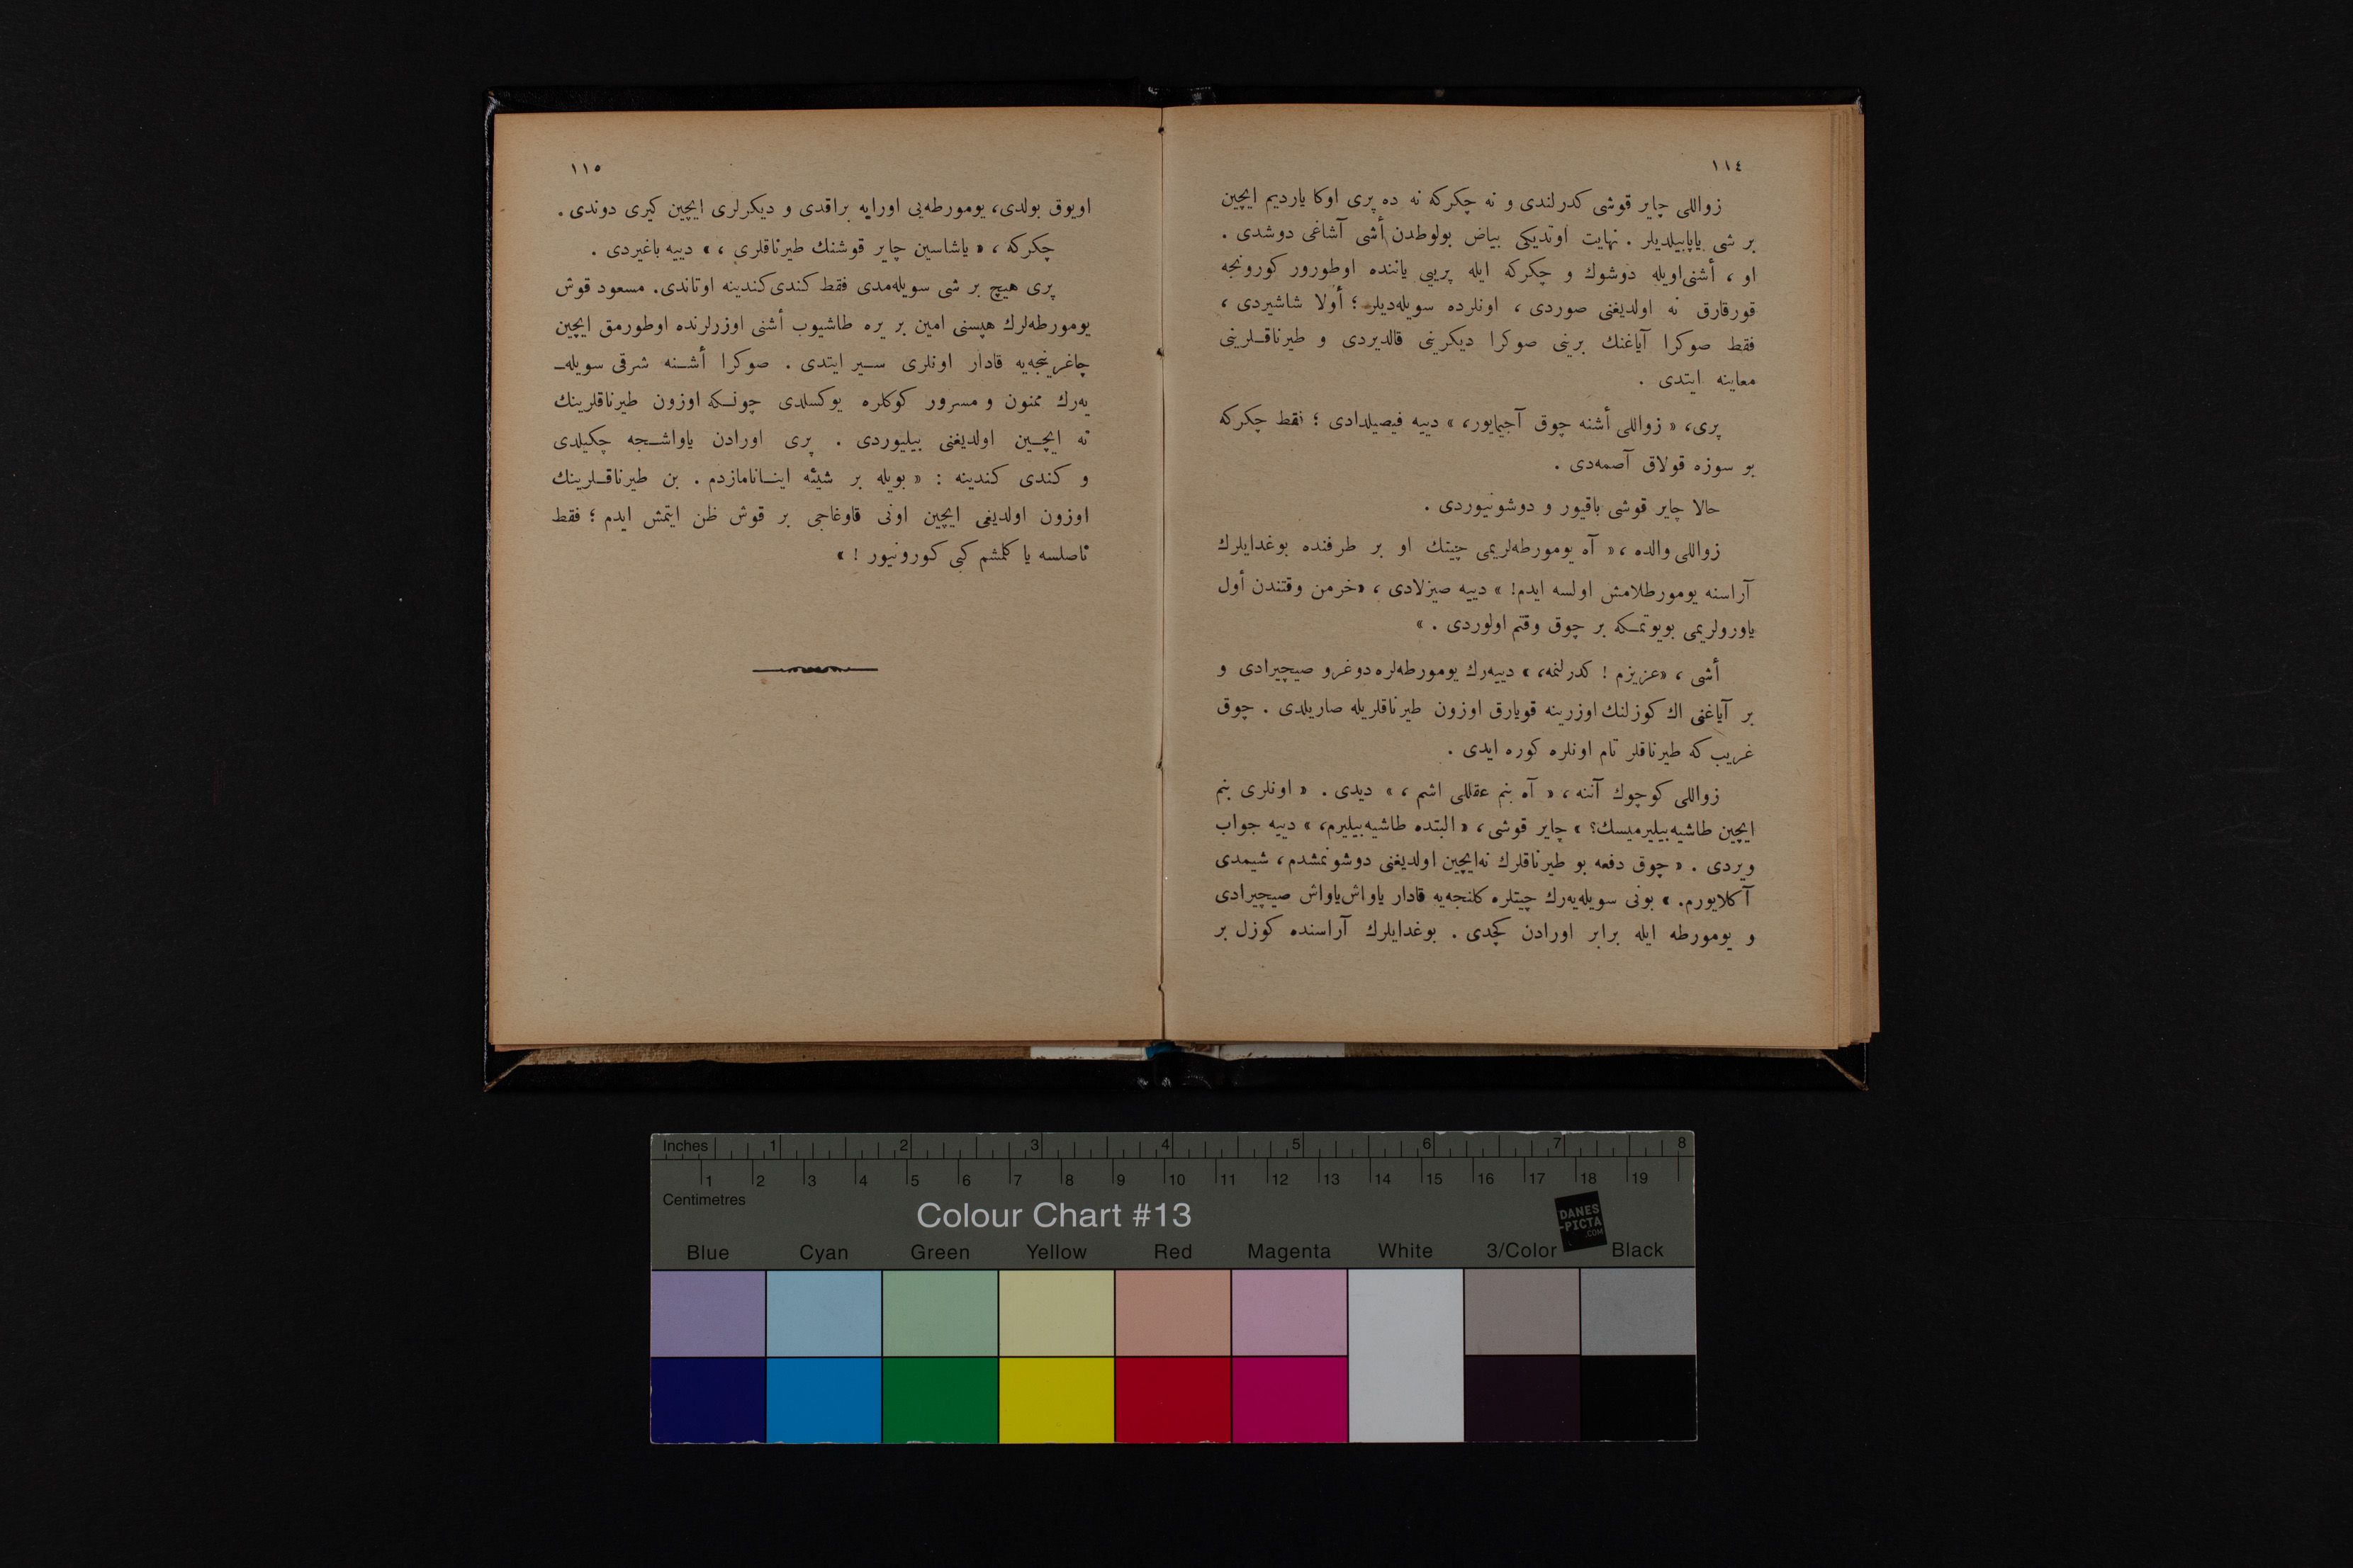 ١١٤
زواللی چایر قوشی کدرلندی و نه چکرکه نه ده پری اوکا یاردیم ایچین
بر شی یاپابیلدیلر . نهایت اوتدیکی بیاض بولوطدن أشی آشاغی دوشدی .
او ، أشنی اویله دوشوك و چکرکه ایله پرییی یاننده اوطورور کورونجه
قورقارق نه اولدیغنی صوردی ، اونلرده سویله‌دیلر ؛ أولا شاشیردی ،
فقط صوکرا آیاغنك برینی صوکرا دیکرینی قالدیردی و طیرناقـلرینی
معاینه ایتدی .
پری، « زواللی أشنه چوق آجیمایور، » دییه فیصیلدادی ؛ فقط چکرکه
بو سوزه قولاق آصمه‌دی .
حالا چایر قوشی باقیور و دوشونیوردی .
زواللی والده ، « آه یومورطه‌لریمی چیتك او بر طرفنده بوغدایلرك
آراسنه یومورطلامش اولسه ایدم! » دییه صیزلادی ، «خرمن وقتندن أول
یاورولریمی بویوتمـکه بر چوق وقتم اولوردی . »
أشی ، «عزیزم ! کدرلنمه، » دییه‌رك یومورطه‌لره دوغرو صیچیرادی و
بر آیاغنی اك کوزلنك اوزرینه قویارق اوزون طیرناقلریله صاریلدی . چوق
غریب که طیرناقلر تام اونلره کوره ایدی .
زواللی کوچوك آننه ، « آه بنم عقللی اشم ، » دیدی . « اونلری بنم
ایچین طاشیه‌بیلیرمیسك؟ » چایر قوشی ، « البتده طاشیه‌بیلیرم، » دییه جواب
ویردی . « چوق دفعه بو طیرناقلرك نه‌ایچین اولدیغنی دوشونمشدم ، شیمدی
آکلایورم. » بونی سویله‌یه‌رك چیتلره کلنجه‌یه قادار یاواش‌یاواش صیچیرادی
و یومورطه ایله برابر اورادن کچدی . بوغدایلرك آراسنده کوزل بر
١١٥
اویوق بولدی، یومورطه‌یی اورایه براقدی و دیکرلری ایچین کیری دوندی .
چکرکه ، « یاشاسین چایر قوشنك طیرناقلری ، » دییه باغیردی .
پری هیچ بر شی سویله‌مدی فقط کندی‌کندینه اوتاندی. مسعود قوش
یومورطه‌لرك هپسنی امین بر یره طاشیوب أشنی اوزرلرنده اوطورمق ایچین
چاغرینجه‌یه قادار اونلری سـیر ایتدی . صوکرا أشـنه شرقی سویله‌ـ
یه‌رك ممنون و مسرور کوکلره یوکسلدی چونـکه اوزون طیرناقلرینك
نه ایچـین اولدیغنی بیلیوردی . پری اورادن یاواشـجه چکیلدی
و کندی کندینه : « بویله بر شیئه اینـانامازدم . بن طیرناقـلرینك
اوزون اولدیغی ایچین اونی قاوغاجی بر قوش ظن ایتمش ایدم ؛ فقط
ناصلسه یا کلمشم کبی کورونیور ! »
Inches 1 2 3 4 5 6 7 8
1 2 3 4 5 6 7 8 9 10 11 12 13 14 15 16 17 18 19
Centimetres
Colour Chart #13
DANES
-PICTA
.COM
Blue Cyan Green Yellow Red Magenta White 3/Color Black